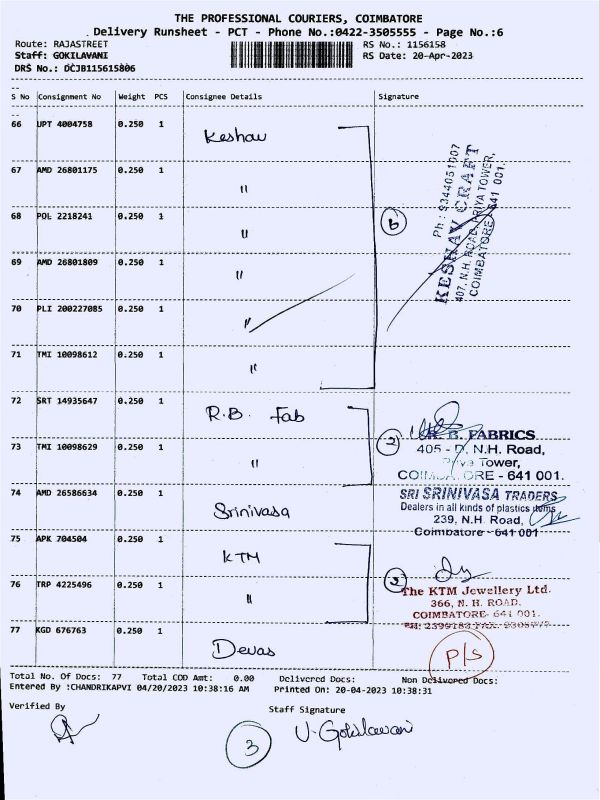 THE PROFESSIONAL COURIERS, COIMBATORE
Delivery Runsheet - PCT - Phone No.:0422-3505555 - Page No.:6
Route: RAJASTREET RS No.: 1156158
Staff: GOKILAVANI RS Date: 20-Apr-2023
DRS No.: DCJB115615806
S No Consignment No Weight PCS Consignee Details Signature
66 UPT 4004758 0.250 1 Keshav
67 AMD 26801175 0.250 1 "
68 POL 2218241 0.250 1 "
69 AMD 26801809 0.250 1 "
70 PLI 200227085 0.250 1 "
71 TMI 10098612 0.250 1 "
6
KESHAV CRAFT
407, N.H. ROAD, PRIYA TOWER,
COIMBATORE 641 001.
Ph : 9344051007
72 SRT 14935647 0.250 1 R.B. Fab
73 TMI 10098629 0.250 1 "
2
R. B. FABRICS
405 - D, N.H. Road,
Priya Tower,
COIMBATORE - 641 001.
74 AMD 26586634 0.250 1 Srinivasa
SRI SRINIVASA TRADERS
Dealers in all kinds of plastics items
239, N.H. Road,
Coimbatore - 641 001
75 APK 704504 0.250 1 KTM
76 TRP 4225496 0.250 1 "
The KTM Jewellery Ltd.
366, N. H. ROAD.
COIMBATORE- 641 001.
77 KGD 676763 0.250 1 Devas
P/S
Total No. Of Docs: 77 Total COD Amt: 0.00 Delivered Docs: Non Delivered Docs:
Entered By :CHANDRIKAPVI 04/20/2023 10:38:16 AM Printed On: 20-04-2023 10:38:31
Verified By Staff Signature
3 V. Gokilavani